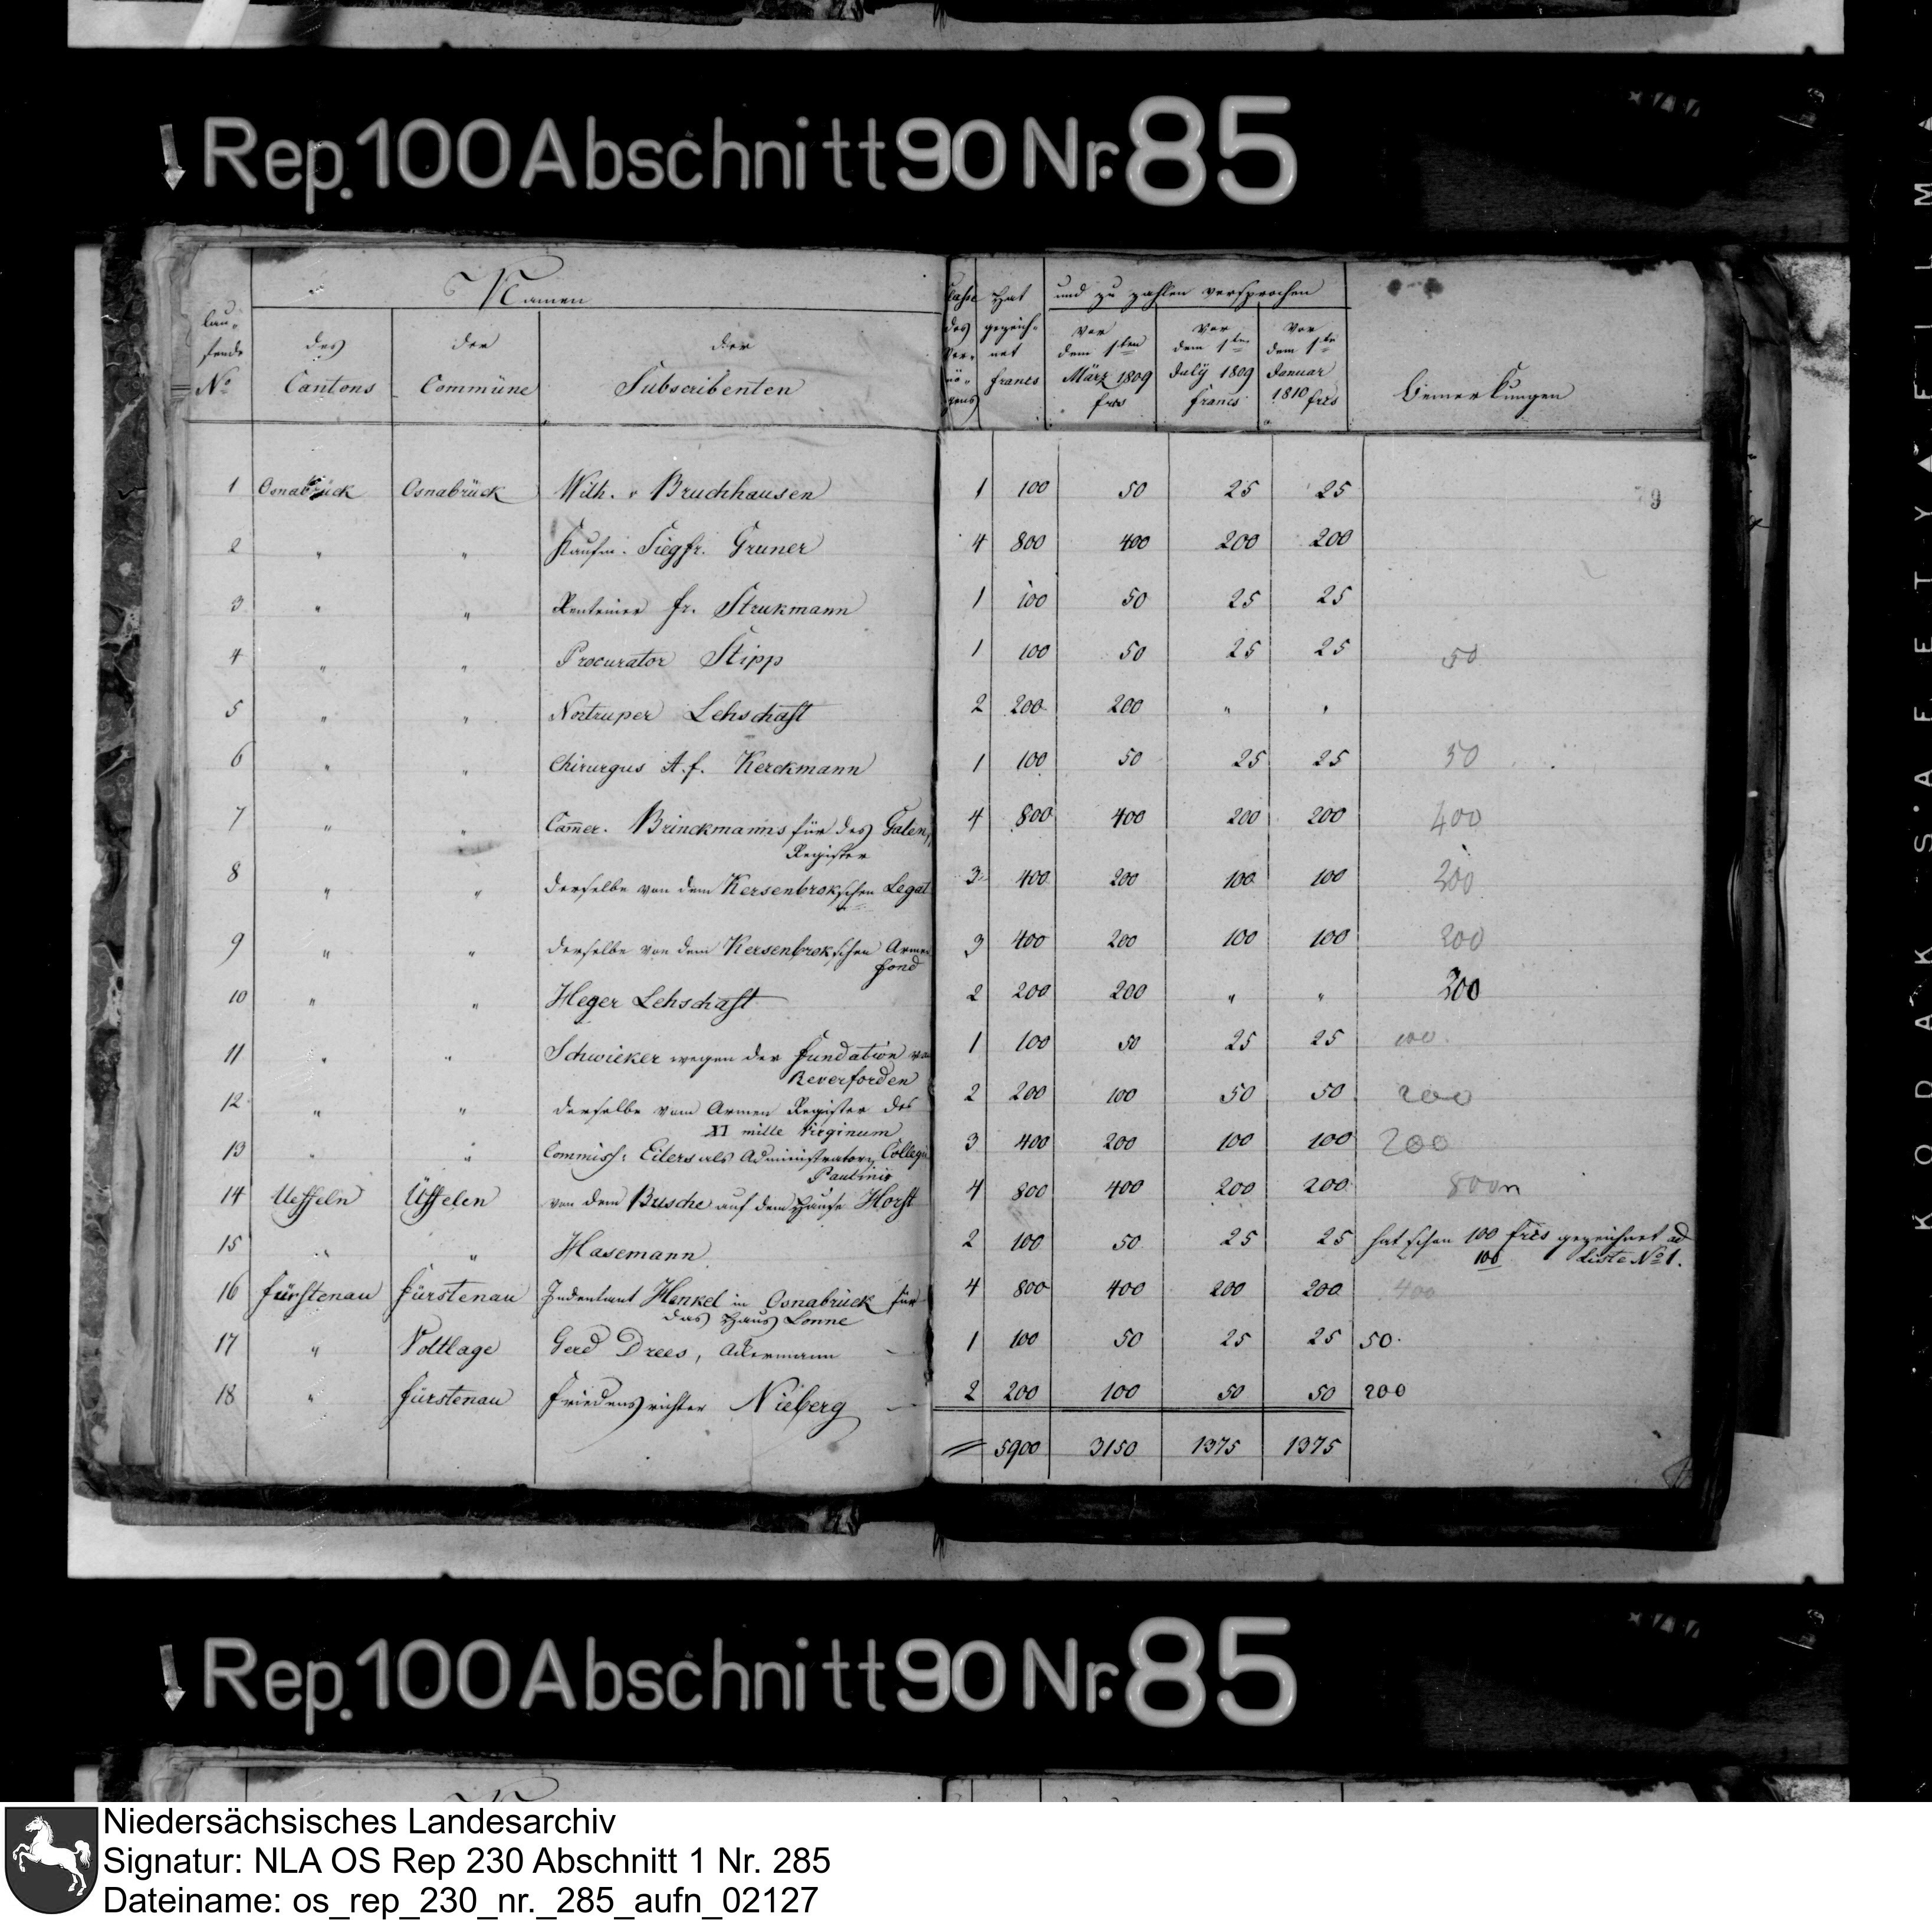 Rep. 100 Abschnitt 90 Nr. 85
Namen
lau-
fende
No
des
Cantons
der
Commüne
der
Subscribenten
Classe
des
Ver-
mö-
gens
Hat
gezeich-
net
francs
und zu zahlen versprochen
vor
dem 1ten
März 1809
frcs
vor
dem 1ten
July 1809
francs
vor
dem 1te
Januar
1810 frcs
Bemerkungen
79
1 Osnabrück Osnabrück Wilh. v Bruchhausen 1 100 50 25 25
2 " " Kaufm. Siegfr. Gruner 4 800 400 200 200
3 " " Rentmer fr. Strukmann 1 100 50 25 25
4 " " Procurator Stipp 1 100 50 25 25 50
5 " " Nortruper Lehschaft 2 200 200 " "
6 " " Chirurgus A. f. Kerckmann 1 100 50 25 25 50
7 " " Cam̄er. Brinckmanns für das Galen, 4 800 400 200 200 400
Register
8 " " derselbe von dem Kersenbrokschen Legat 3 400 200 100 100 200
9 " " derselbe von dem Kersenbrokschen Armen 3 400 200 100 100 200
fond
10 " " Heger Lehschaft 2 200 200 " " 200
11 " " Schwieker wegen der fundation von 1 100 50 25 25 100.
Reverforden
12 " " derselbe vom Armen Register des 2 200 100 50 50 200
XI mille Virginum
13 " " Commiss: Eilers als Administrator Collegii 3 400 200 100 100 200
Paulinis
14 Ueffeln Üffelen von dem Busche auf dem Hause Horst 4 800 400 200 200 800
15 " " Hasemann 2 100 50 25 25 hat schon 100 frcs gezeichnet ad
100 Liste No 1.
16 fürstenau fürstenau Intendant Henkel in Osnabrück für 4 800 400 200 200 400
das Haus Lonne
17 " Voltlage Gerd Drees, Ackermann 1 100 50 25 25 50.
18 " fürstenau Friedensrichter Nieberg 2 200 100 50 50 200
5900 3150 1375 1375
Rep. 100 Abschnitt 90 Nr. 85
KODAK SAFETY FILM
Niedersächsisches Landesarchiv
Signatur: NLA OS Rep 230 Abschnitt 1 Nr. 285
Dateiname: os_rep_230_nr._285_aufn_02127